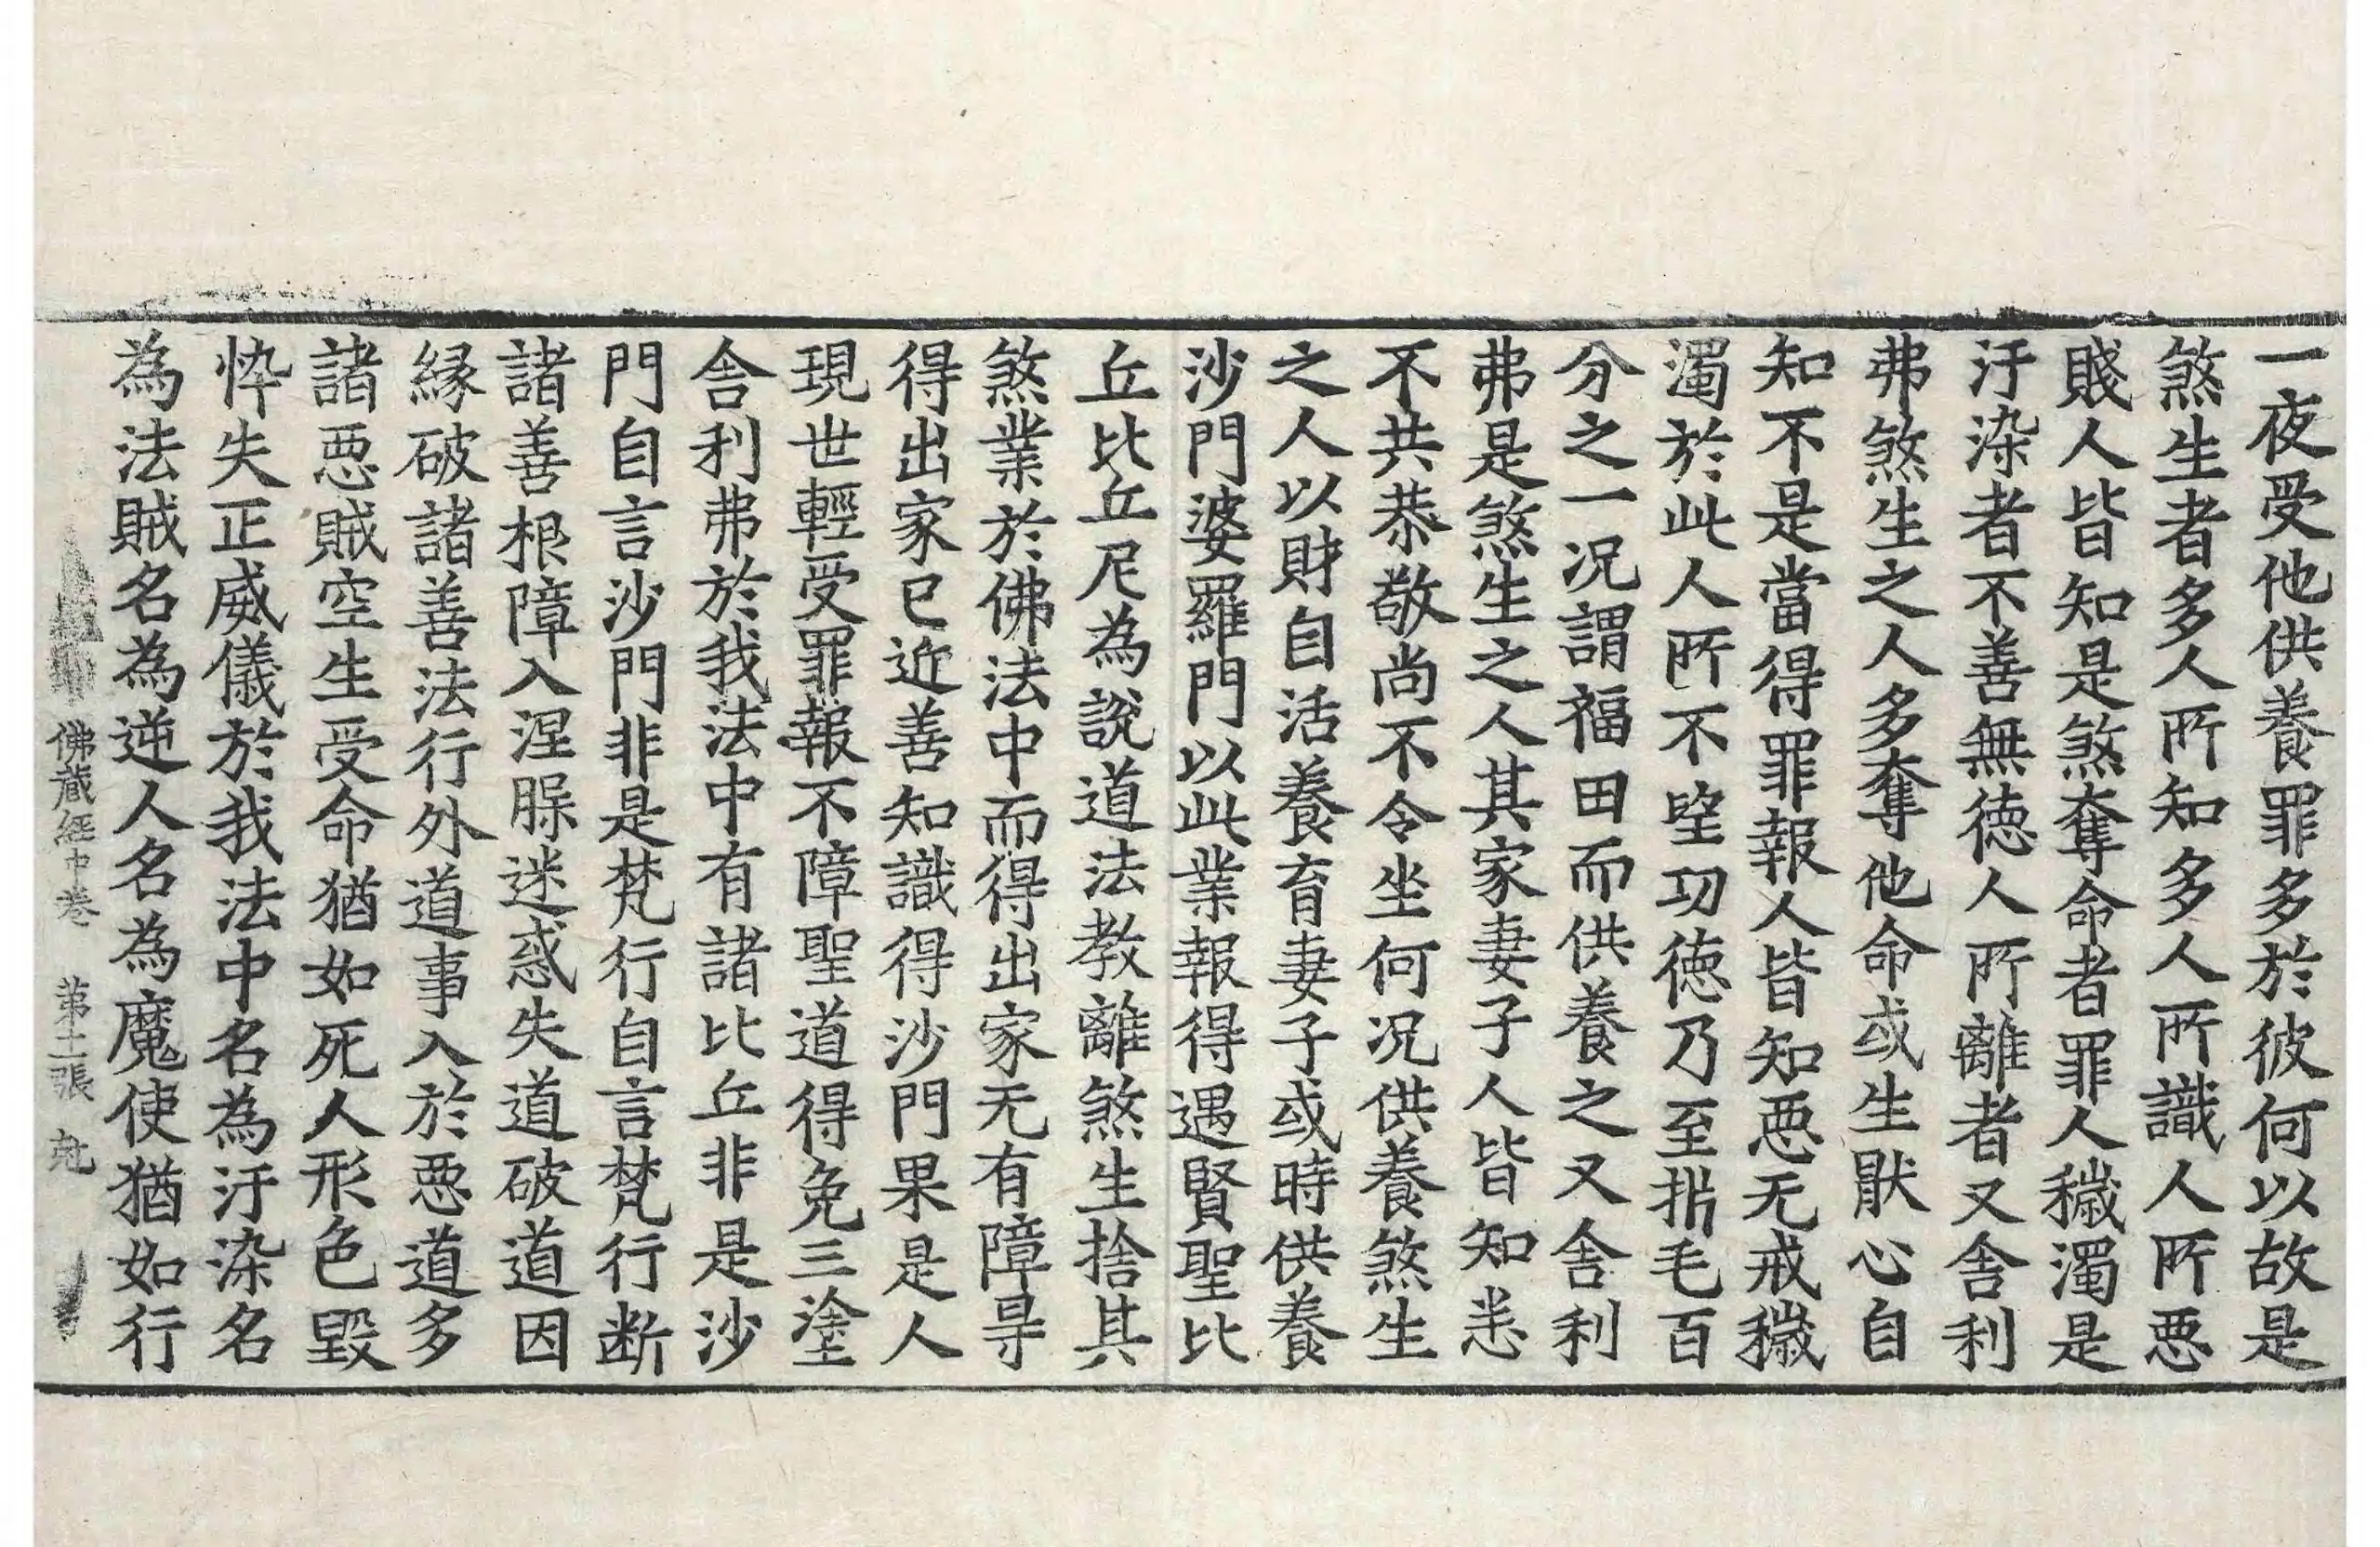 一夜受他供養罪多於彼何以故是
煞生者多人所知多人所識人所悪
賤人皆知是煞奪命者罪人穢濁是
汙染者不善無徳人所離者又舍利
弗煞生之人多奪他命或生猒心自
知不是當得罪報人皆知悪无戒穢
濁於此人所不望功徳乃至㭊毛百
分之一况謂福田而供養之又舍利
弗是煞生之人其家妻子人皆知恙
不共恭敬尚不令坐何况供養煞生
之人以財自活養育妻子或時供養
沙門婆羅門以此業報得遇賢聖比
丘比丘尼為説道法教離煞生捨其
煞業於佛法中而得出家无有障㝵
得出家已近善知識得沙門果是人
現世輕受罪報不障聖道得免三塗
舍利弗於我法中有諸比丘非是沙
門自言沙門非是梵行自言梵行断
諸善根障入涅脲迷惑失道破道因
縁破諸善法行外道事入於悪道多
諸悪賊空生受命猶如死人形色毀
忰失正威儀於我法中名為汙染名
為法賊名為逆人名為魔使猶如行
佛蔵経中巻 苐十二張